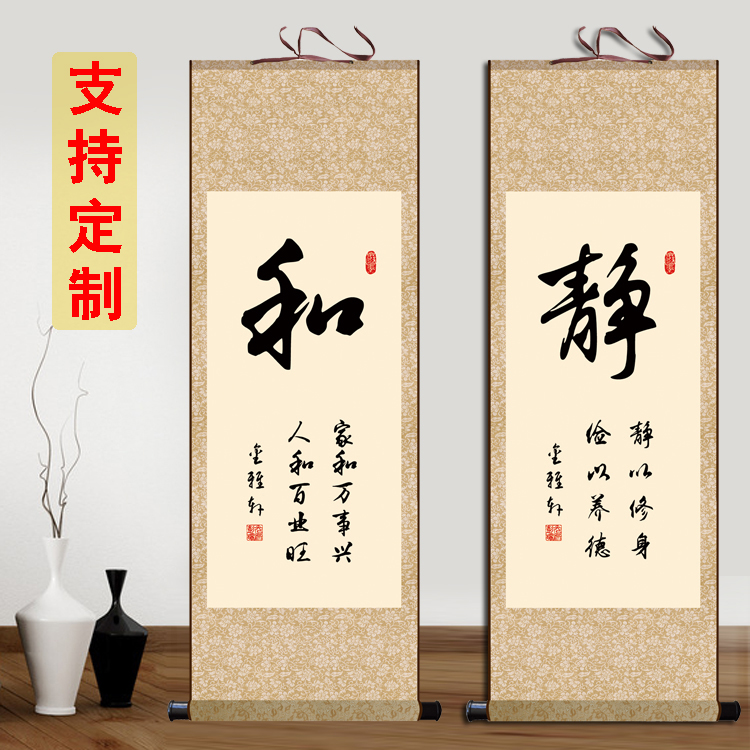 支持定制
和
家和万事兴
人和百业旺
金雅轩
静
静以修身
俭以养德
金雅轩